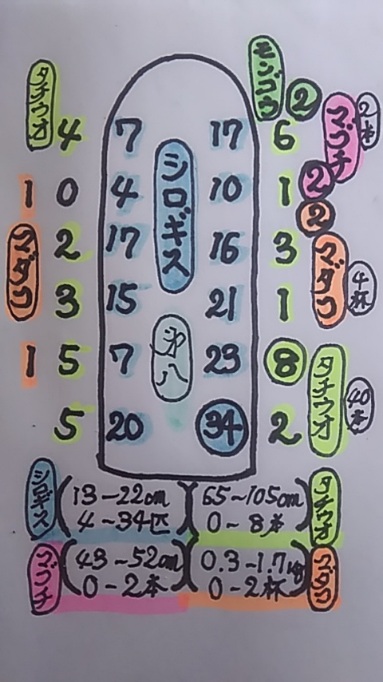 モンゴウ ②
タチウオ 4 7 17 6 マゴチ 2本
シロギス
1 0 4 10 1 ②
②
マダコ 2 17 16 3 マダコ 4杯
3 15 21 1
第八
1 5 7 23 ⑧ タチウオ 40本
5 20 34 2
シロギス (13-22cm 4-34匹)
(65~105cm 0~8本) タチウオ
マゴチ (43~52cm 0-2本)
(0.3-1.7kg 0-2杯) マダコ